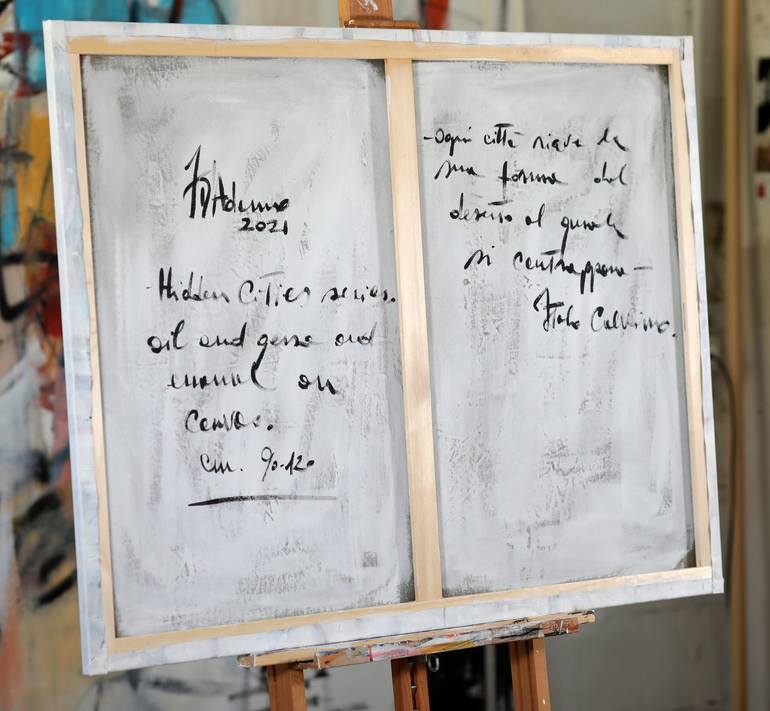 2021
-Hidden Cities series.
oil and gesso and
enamel on
canvas.
cm. 90-120
-Ogni città riceve la
sua forma dal
deserto al quale
si contrappone-
Italo Calvino.